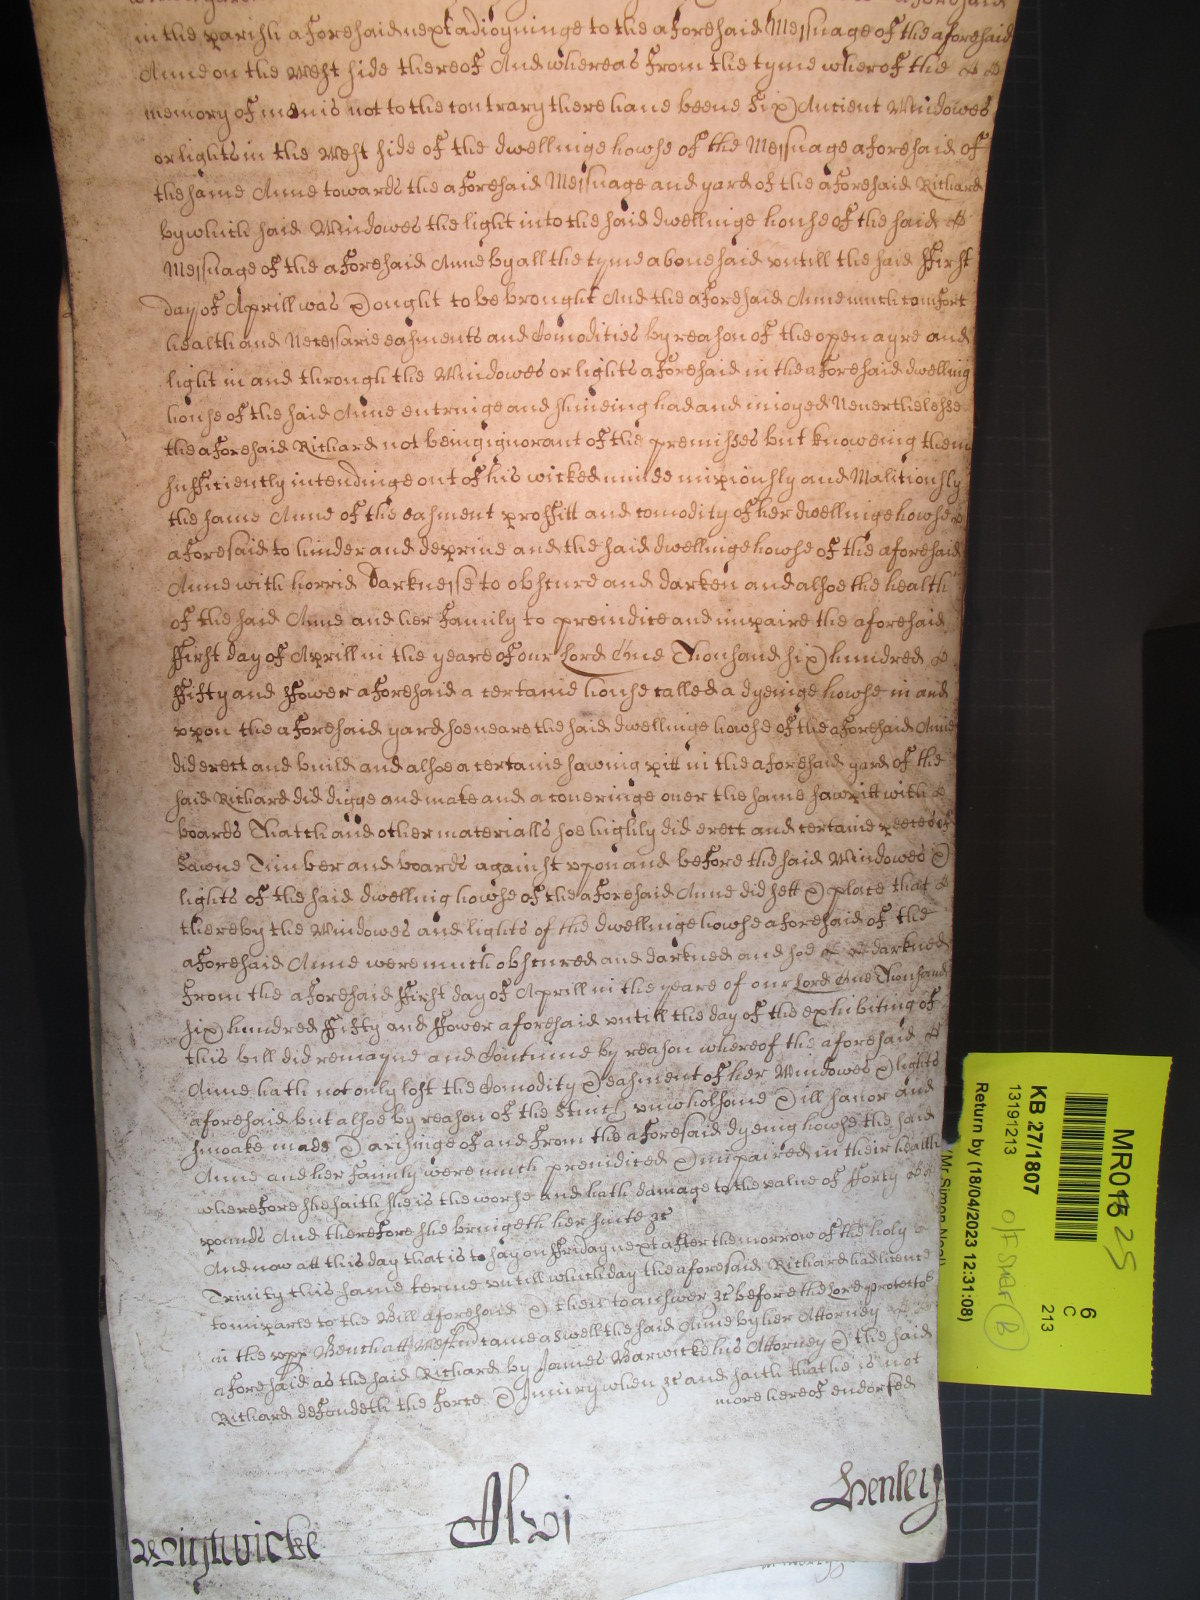 in the parish aforesaid next adioyninge to the aforesaid Messuage of the aforesaid
Anne on the West side thereof And whereas from the tyme wherof the
memory of man is not to the contrary there haue beene six Ancient Windowes
or lights in the West side of the dwellinge howse of the Messuage aforesaid of
the same Anne towards the aforesaid Messuage and yard of the aforesaid Richard
by which said Windowes the light into the said dwellinge house of the said
Messuage of the aforesaid Anne by all the tyme abouesaid vntill the said ffirst
day of Aprill was & ought to be brought And the aforesaid Anne much comfort
health and Necessarie easments and Comodities by reason of the open ayre and
light in and through the Windowes or lights aforesaid in the aforesaid dwelling
house of the said Anne entringe and shineing had and inioyed Neuerthelesse
the aforesaid Richard not being ignorant of the premisses but knoweing them
sufficiently intendinge out of his wicked minde iniuriously and Malitiously
the same Anne of the easment proffitt and comodity of her dwellinge howse
aforesaid to hinder and depriue and the said dwellinge howse of the aforesaid
Anne with horrid Darknesse to obscure and darken and alsoe the health
of the said Anne and her family to preiudice and impaire the aforesaid
ffirst day of Aprill in the yeare of our Lord One Thousand six hundred
ffifty and ffower aforesaid a certaine house called a dyeinge howse in and
vpon the aforesaid yard soe neare the said dwellinge howse of the aforesaid Anne
did erect and build and alsoe a certaine sawing pitt in the aforesaid yard of the
said Richard did digge and make and a coueringe ouer the same sawpitt with
boards Thatch and other materialls soe highly did erect and certaine peeces of
Sawne Timber and boards against vpon and before the said Windowes &
lights of the said dwelling howse of the aforesaid Anne did sett & place that
thereby the Windowes and lights of the dwellinge howse aforesaid of the
aforesaid Anne were much obscured and darkned and soe darkned
from the aforesaid ffirst day of Aprill in the yeare of our Lord One Thousand
six hundred ffifty and ffower aforesaid vntill the day of the exhibiting of
this bill did remayne and Continue by reason whereof the aforesaid
Anne hath not only lost the Comodity & easment of her Windowes & lights
aforesaid but alsoe by reason of the Stinch vnwholsome & ill sauor and
smoake made & arisinge of and from the aforesaid dyeing howse the said
Anne and her family were much preiudiced & impaired in their health
wherefore she saith she is the worse and hath damage to the value of fforty
pounds And therefore she bringeth her suite &c
And now att this day that is to say on ffriday next after the morrow of the holy
Trinity this same terme vntill which day the aforesaid Richard had licence
to imparle to the Bill aforesaid & then to answer &c before the Lord protector
in the vpp Bench att Westm came aswell the said Anne by her Attorney
aforesaid as the said Richard by James Barwicke his Attorney & the said
Richard defendeth the force & Iniury when &c and saith that he is not
more hereof endorsed
Wightwicke
Henley
MR01
25
6
C
213
KB 27/1807
13191213
Return by (18/04/2023 12:31:08)